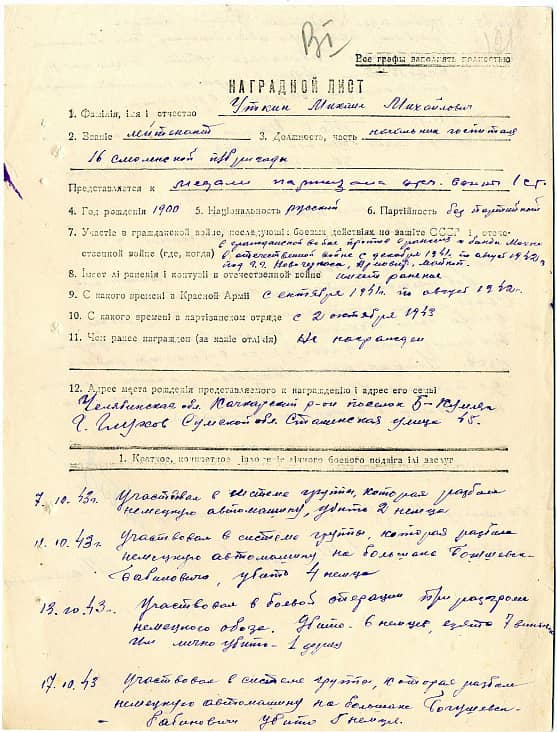 Все графы заполнять полностью
НАГРАДНОЙ ЛИСТ
1. Фамілія, імя і отчество Уткин Михаил Михайлович
2. Званіе лейтенант 3. Должность, часть начальник госпиталя
16 Смоленской п/бригады
Представляется к медали партизана отеч. войны I ст.
4. Год рождения 1900 5. Національность русский 6. Партійность без партійный
7. Участіе в гражданской войне, последующіх боевых действіях по защіте СССР і отече-
ственной войне (где, когда) в гражданской войне против и банды Махно
в отечественной войне с декабря 1941 по август 1942 г.
под г.г. Новочеркаск
8. Імеет лі раненія і контузіі в отечественной войне имеет ранение
9. С какого временіі в Красной Арміі с сентября 1941 г. по август 1942.
10. С какого временіі в партізанском отряде с 2 октября 1943
11. Чем ранее награжден (за какіе отлічія) Не награжден
12. Адрес места рожденія представляемого к награжденію і адрес его семьі
Челябинская обл. Качкарский р-он поселок Б-
г. Глухов Сумской обл. Сталинская улица 45.
1. Краткое, конкретное ізложеніе лічного боевого подвіга ілі заслуг
7.10.43г. Участвовал в системе группы, которая разбила
немецкую автомашину, убито 2 немца
11.10.43г. Участвовал в системе группы, которая разбила
немецкую автомашину на большаке Богушевск-
Бабиновичи, убито 4 немца
13.10.43г. Участвовал в боевой операции при разгроме
немецкого обоза. Убито 6 немцев, взято 7
Им лично убит 1
17.10.43 Участвовал в системе группы, которая разбила
немецкую автомашину на большаке Богушевск-
- Бабиновичи убито немца.